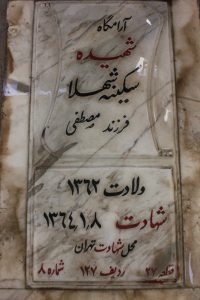 آرامگاه
شهیده
سکینه شهلا
فرزند مصطفی
ولادت ۱۳۶۲
شهادت ۱۳۶۴/۱/۸
محل شهادت تهران
قطعه ۲۷ ردیف ۱۲۷ شماره ۸